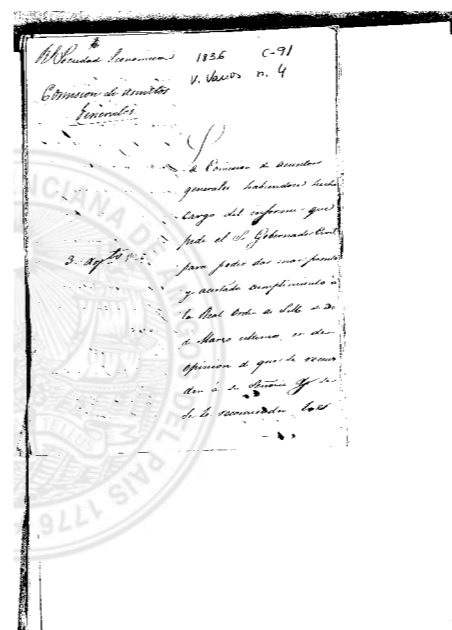 Rl Sociedad Economica
1836 C-91
V. Varios n. 4
Comision de asuntos
Generales
La Comision de asuntos
generales habiendose hecho
cargo del informe que
pide el Sr. Gobernador Civil
para poder dar mas pronto
y acertado cumplimiento à
la Real orden de
de Marzo ultimo, es de
opinion de que se
à su Señoria
se le
3. Agto
CIANA DE AMIGOS DEL PAIS 1776